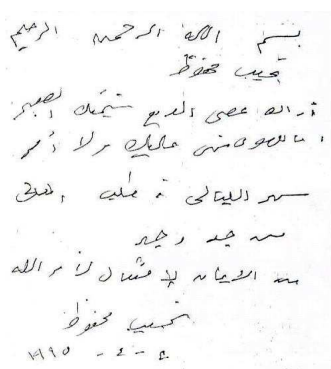 بسم الله الرحمن الرحيم
نجيب محفوظ
أراك عصي الدمع شيمتك الصبر
أما للهوى نهى عليك ولا أمر
سهر الليالي فى طلب
من جد وجد
من الايمان الامتثال لأمر الله
نجيب محفوظ
١٩٩٥ - ٤ - ٤